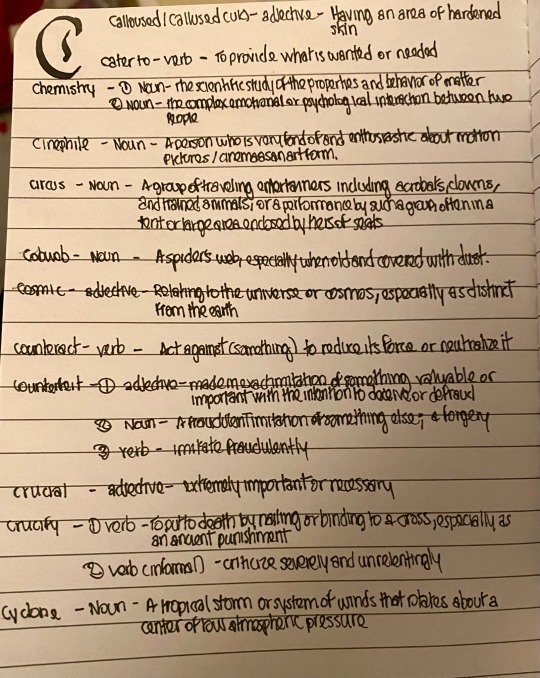 C's
Calloused / Callused (UK) - adjective - Having an area of hardened
skin
cater to - verb - To provide what is wanted or needed
Chemistry - ① Noun - the scientific study of the properties and behavior of matter
② Noun - the complex emotional or psychological interaction between two
people
Cinephile - Noun - A person who is very fond of and enthusiastic about motion
pictures / cinema as an art form.
circus - Noun - A group of traveling entertainers including acrobats, clowns,
and trained animals; or a performance by such a group, often in a
tent or large area enclosed by tiers of seats
Cobweb - Noun - A spiders web, especially when old and covered with dust.
Cosmic - adjective - Relating to the universe or cosmos, especially as distinct
from the earth
counteract - verb - Act against (something) to reduce its force or neutralize it
counterfeit - ① adjective - made in exact imitation of something valuable or
important with the intention to deceive or defraud
② Noun - A fraudulent imitation of something else; a forgery
③ verb - imitate fraudulently
crucial - adjective - extremely important or necessary
crucify - ① verb - To put to death by nailing or binding to a cross, especially as
an ancient punishment
② verb (informal) - criticize severely and unrelentingly
Cyclone - Noun - A tropical storm or system of winds that rotates about a
center of low atmospheric pressure